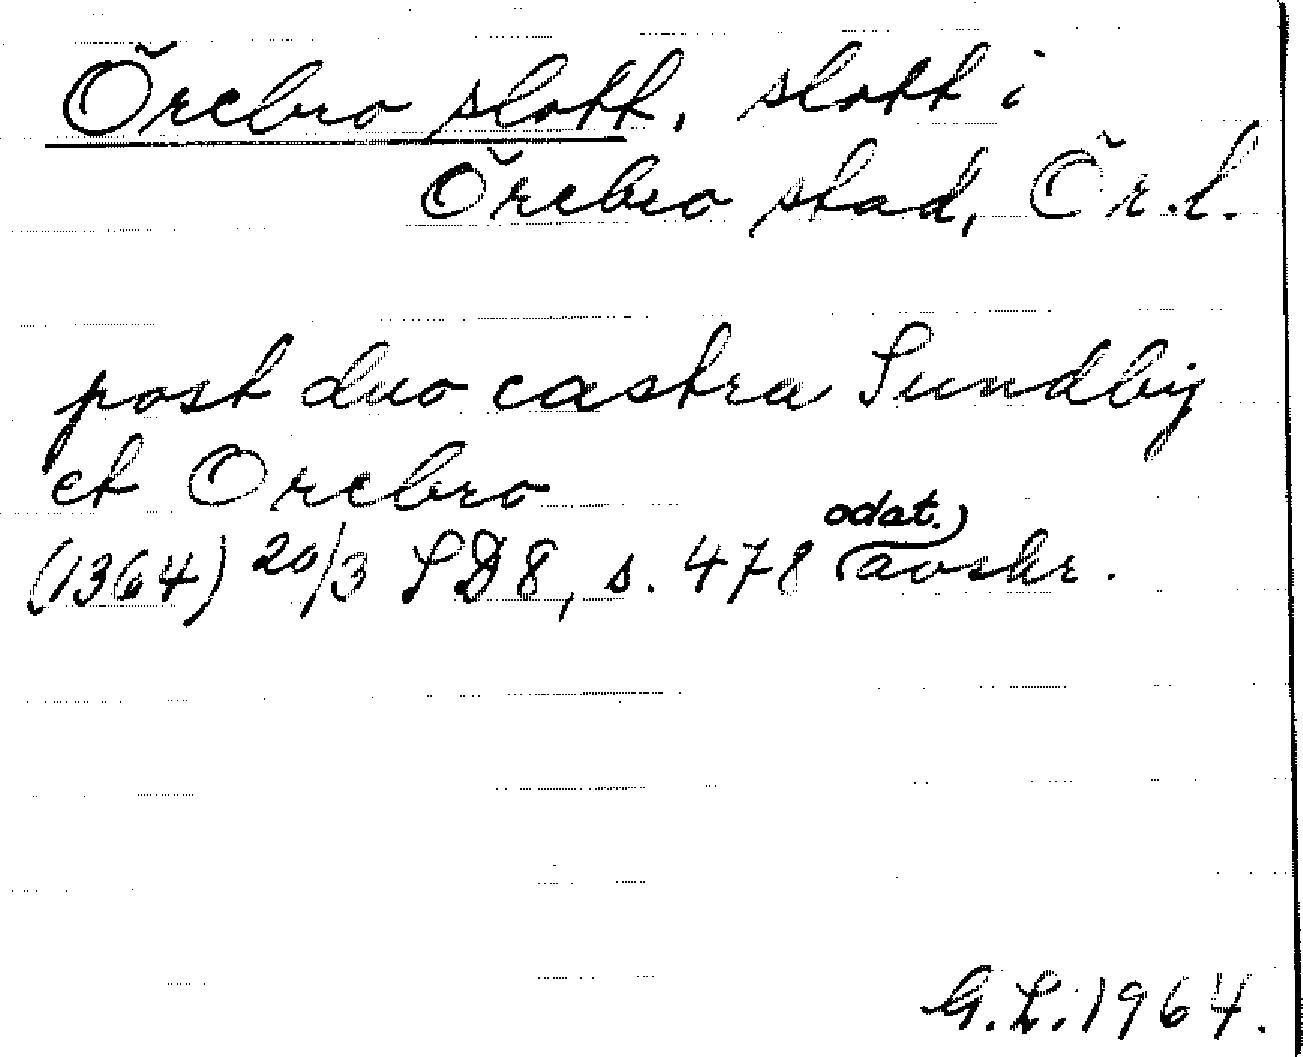 Örebro slott, slott i
Örebro stad, Ör.l.
post duo castra Sundby
et Orebro
odat.)
(1364) 20/3 SD8, s. 478 (avskr.
G.L. 1964.